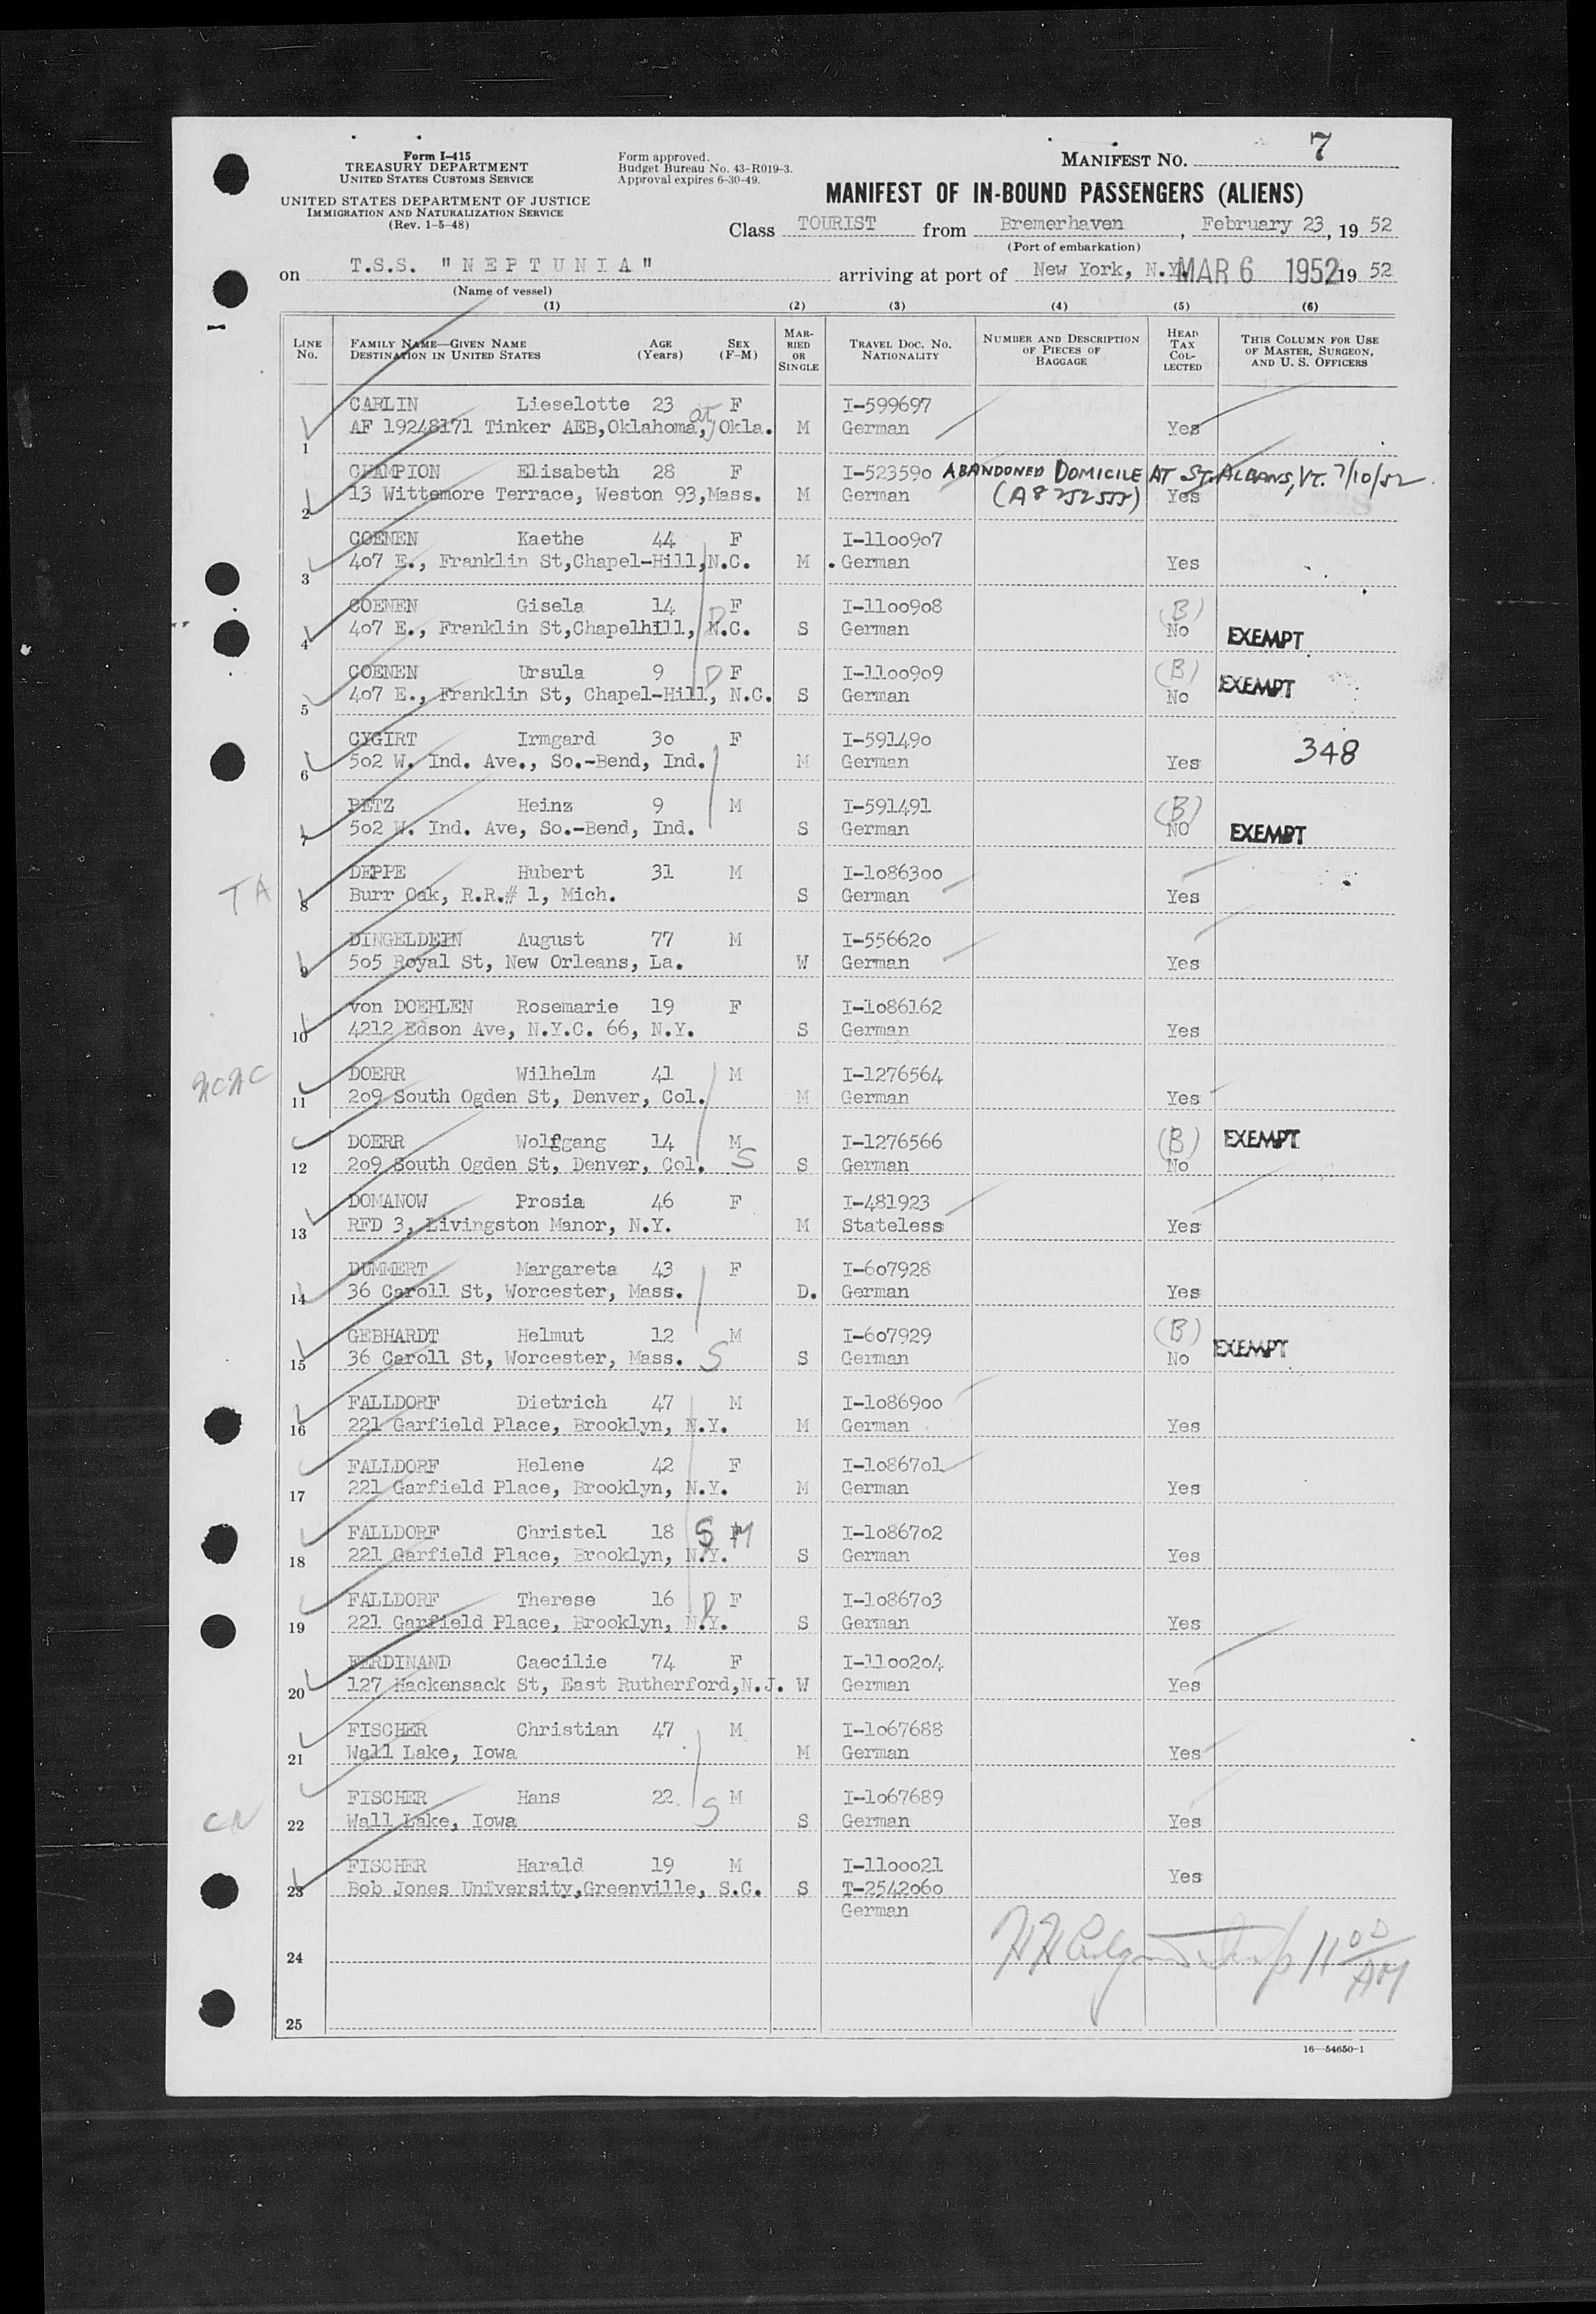 Form I-415
TREASURY DEPARTMENT
UNITED STATES CUSTOMS SERVICE
UNITED STATES DEPARTMENT OF JUSTICE
IMMIGRATION AND NATURALIZATION SERVICE
(Rev. 1-5-48)
Form approved.
Budget Bureau No. 43-R019-3.
Approval expires 6-30-49.
MANIFEST NO. 7
MANIFEST OF IN-BOUND PASSENGERS (ALIENS)
Class TOURIST from Bremerhaven, February 23, 19 52
(Port of embarkation)
on T.S.S. "NEPTUNIA" arriving at port of New York, N.Y. MAR 6 1952 19 52
(Name of vessel)
(1) (2) (3) (4) (5) (6)
LINE NO. FAMILY NAME—GIVEN NAME DESTINATION IN UNITED STATES AGE (Years) SEX (F-M) MARRIED OR SINGLE TRAVEL DOC. NO. NATIONALITY NUMBER AND DESCRIPTION OF PIECES OF BAGGAGE HEAD TAX COLLECTED THIS COLUMN FOR USE OF MASTER, SURGEON, AND U. S. OFFICERS
CARLIN Lieselotte 23 F I-599697
1 AF 19248171 Tinker AEB,Oklahoma, Okla. M German Yes
CHAMPION Elisabeth 28 F I-523590 ABANDONED DOMICILE AT ST. ALBANS, VT. 7/10/52.
2 13 Wittemore Terrace, Weston 93,Mass. M German (A8 252 555) Yes
COENEN Kaethe 44 F I-1100907
3 407 E., Franklin St,Chapel-Hill,N.C. M German Yes
COENEN Gisela 14 F I-1100908 (B)
4 407 E., Franklin St,Chapelhill, N.C. S German No EXEMPT
COENEN Ursula 9 F I-1100909 (B)
5 407 E., Franklin St, Chapel-Hill, N.C. S German No EXEMPT
CYGIRT Irmgard 30 F I-591490 348
6 502 W. Ind. Ave., So.-Bend, Ind. M German Yes
PETZ Heinz 9 M I-591491 (B)
7 502 W. Ind. Ave, So.-Bend, Ind. S German NO EXEMPT
DEPPE Hubert 31 M I-1086300
TA 8 Burr Oak, R.R.# 1, Mich. S German Yes
DINGELDEIN August 77 M I-556620
9 505 Royal St, New Orleans, La. W German Yes
von DOEHLEN Rosemarie 19 F I-1086162
10 4212 Edson Ave, N.Y.C. 66, N.Y. S German Yes
DOERR Wilhelm 41 M I-1276564
11 209 South Ogden St, Denver, Col. M German Yes
DOERR Wolfgang 14 M I-1276566 (B) EXEMPT
12 209 South Ogden St, Denver, Col. S S German No
DOMANOW Prosia 46 F I-481923
13 RFD 3, Livingston Manor, N.Y. M Stateless Yes
DUMMERT Margareta 43 F I-607928
14 36 Caroll St, Worcester, Mass. D. German Yes
GEBHARDT Helmut 12 M I-607929 (B)
15 36 Caroll St, Worcester, Mass. S S German No EXEMPT
FALLDORF Dietrich 47 M I-1086900
16 221 Garfield Place, Brooklyn, N.Y. M German Yes
FALLDORF Helene 42 F I-1086701
17 221 Garfield Place, Brooklyn, N.Y. M German Yes
FALLDORF Christel 18 S M I-1086702
18 221 Garfield Place, Brooklyn, N.Y. S German Yes
FALLDORF Therese 16 D F I-1086703
19 221 Garfield Place, Brooklyn, N.Y. S German Yes
FERDINAND Caecilie 74 F I-1100204
20 127 Hackensack St, East Rutherford,N.J. W German Yes
FISCHER Christian 47 M I-1067688
21 Wall Lake, Iowa M German Yes
FISCHER Hans 22 S M I-1067689
22 Wall Lake, Iowa S German Yes
FISCHER Harald 19 M I-1100021
23 Bob Jones University,Greenville, S.C. S T-2542060 Yes
German
24 11 00 AM
25
16—54650-1